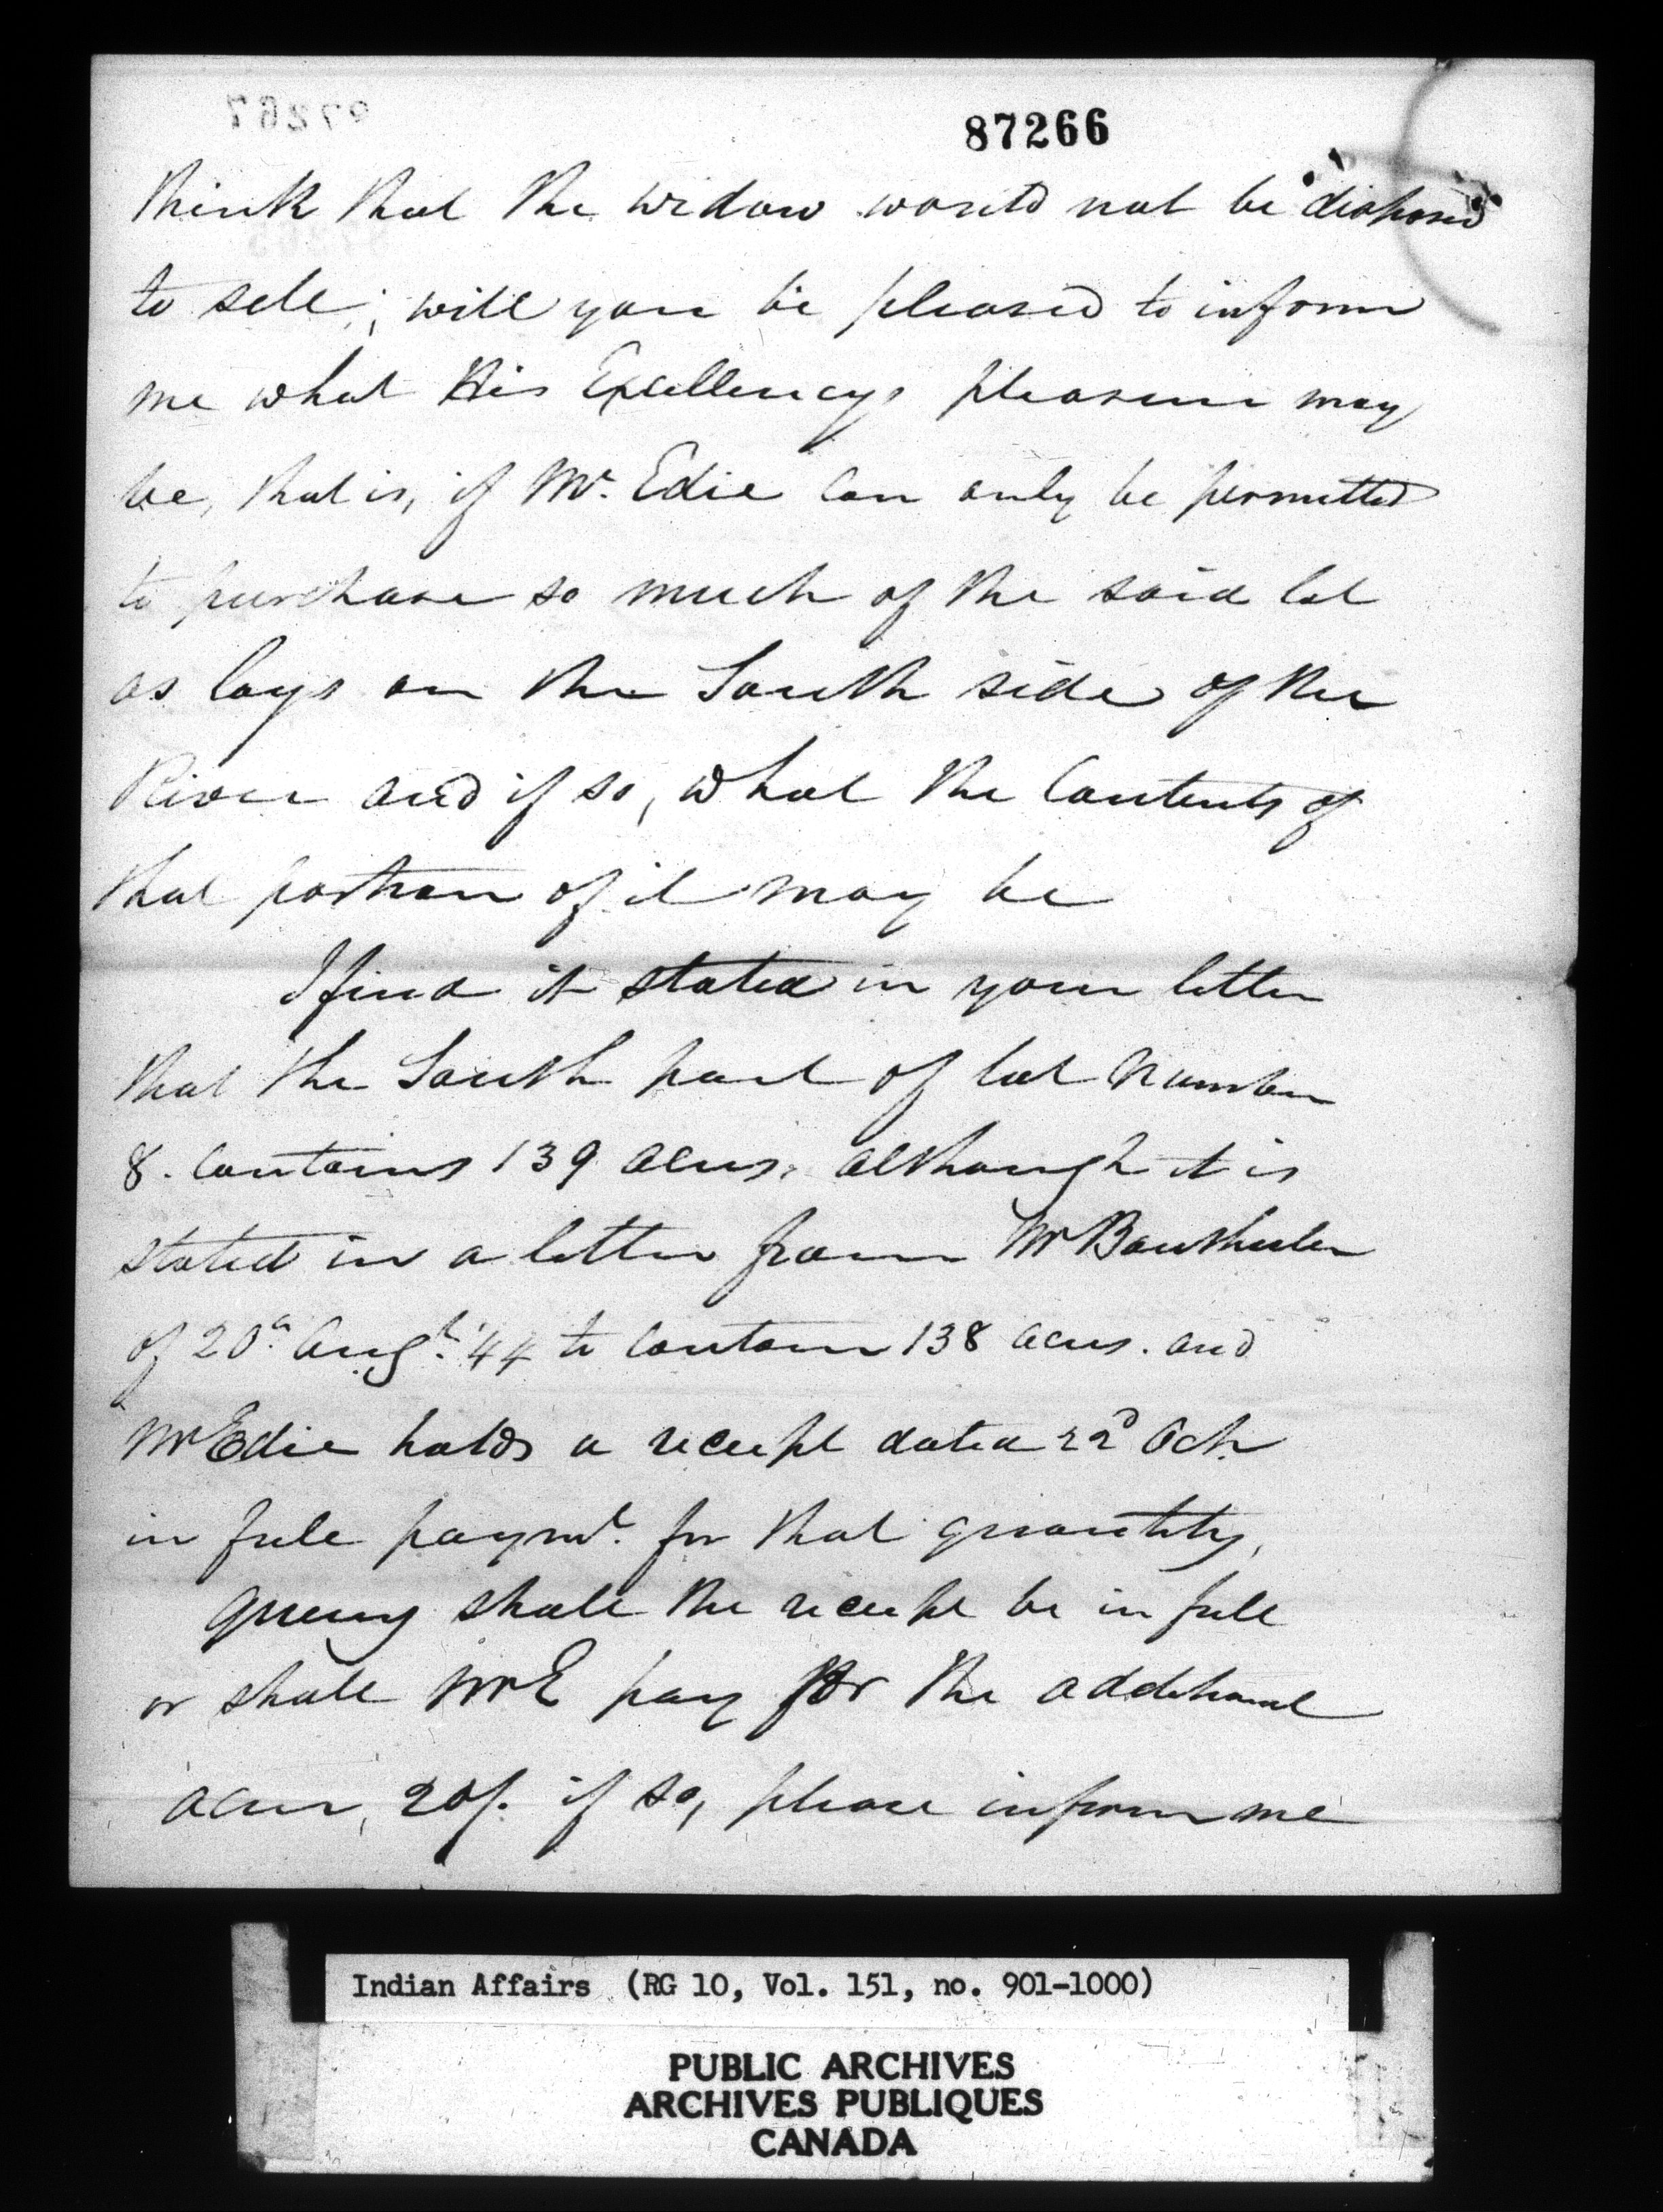 87266
think that the widow would not be disposed
to sell; will you be pleased to inform
me what His Excellencys pleasure may
be, that is, if Mr. Edie can only be permitted
to purchase so much of the said lot
as lays on the South side of the
River and if so, what the Contents of
that portion of it may be
I find it stated in your letter
that the South part of lot Number
8. Contains 139 acres, although it is
stated in a letter from Mr
of 20th Augt. '44 to Contain 138 acres. and
Mr Edie holds a receipt dated 22d Oct.
in full paymt. for that quantity,
query shall the receipt be in full
or shall Mr E pay for the additional
acre, 20/. if so, please inform me
Indian Affairs (RG 10, Vol. 151, no. 901-1000)
PUBLIC ARCHIVES
ARCHIVES PUBLIQUES
CANADA